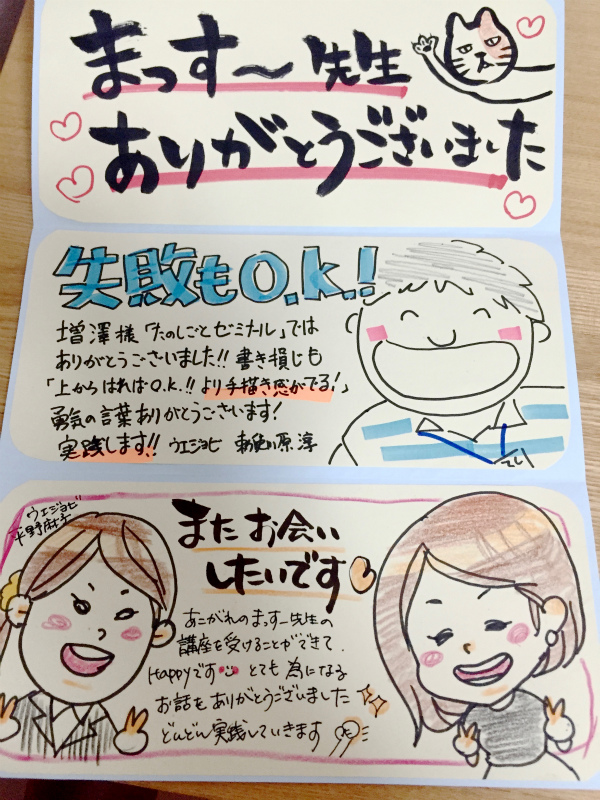 まっす〜先生
ありがとうございました
失敗もO.k.!
増澤様「たのしごとゼミナル」では
ありがとうございました!! 書き損じも
「上からはればO.k.!! より手描き感がでる!」
勇気の言葉ありがとうございます!
実践します!! ウエジョビ 原 淳
ウエジョビ
平野麻
またお会い
したいです
あこがれのまっすー先生の
講座を受けることができて
Happyです とても為になる
お話をありがとうございました
どんどん実践していきます